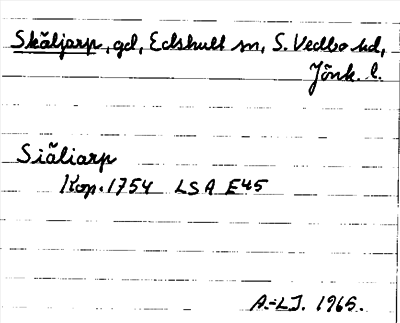 Skäljarp, gd, Edshult sn, S. Vedbo hd,
Jönk. l.
Siäliarp
Kop. 1754 LSA E45
A.-L.J. 1965.